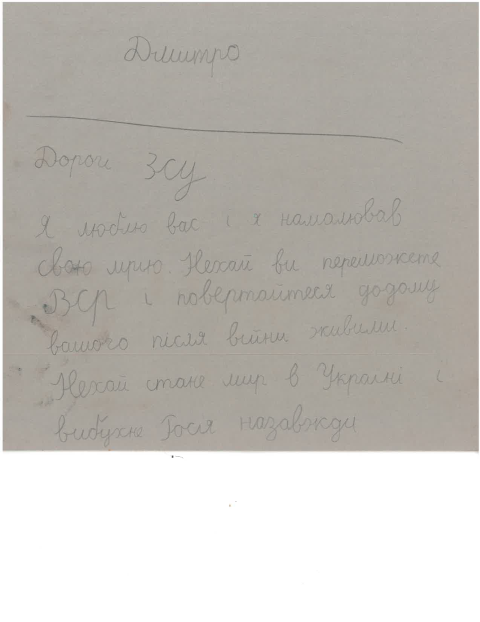 Дмитро
Дорогі ЗСУ
Я люблю вас і я намалював
свою мрію. Нехай ви переможете
ВСР і повертайтеся додому
вашого після війни живими.
Нехай стане мир в Україні і
вибухне Росія назавжди